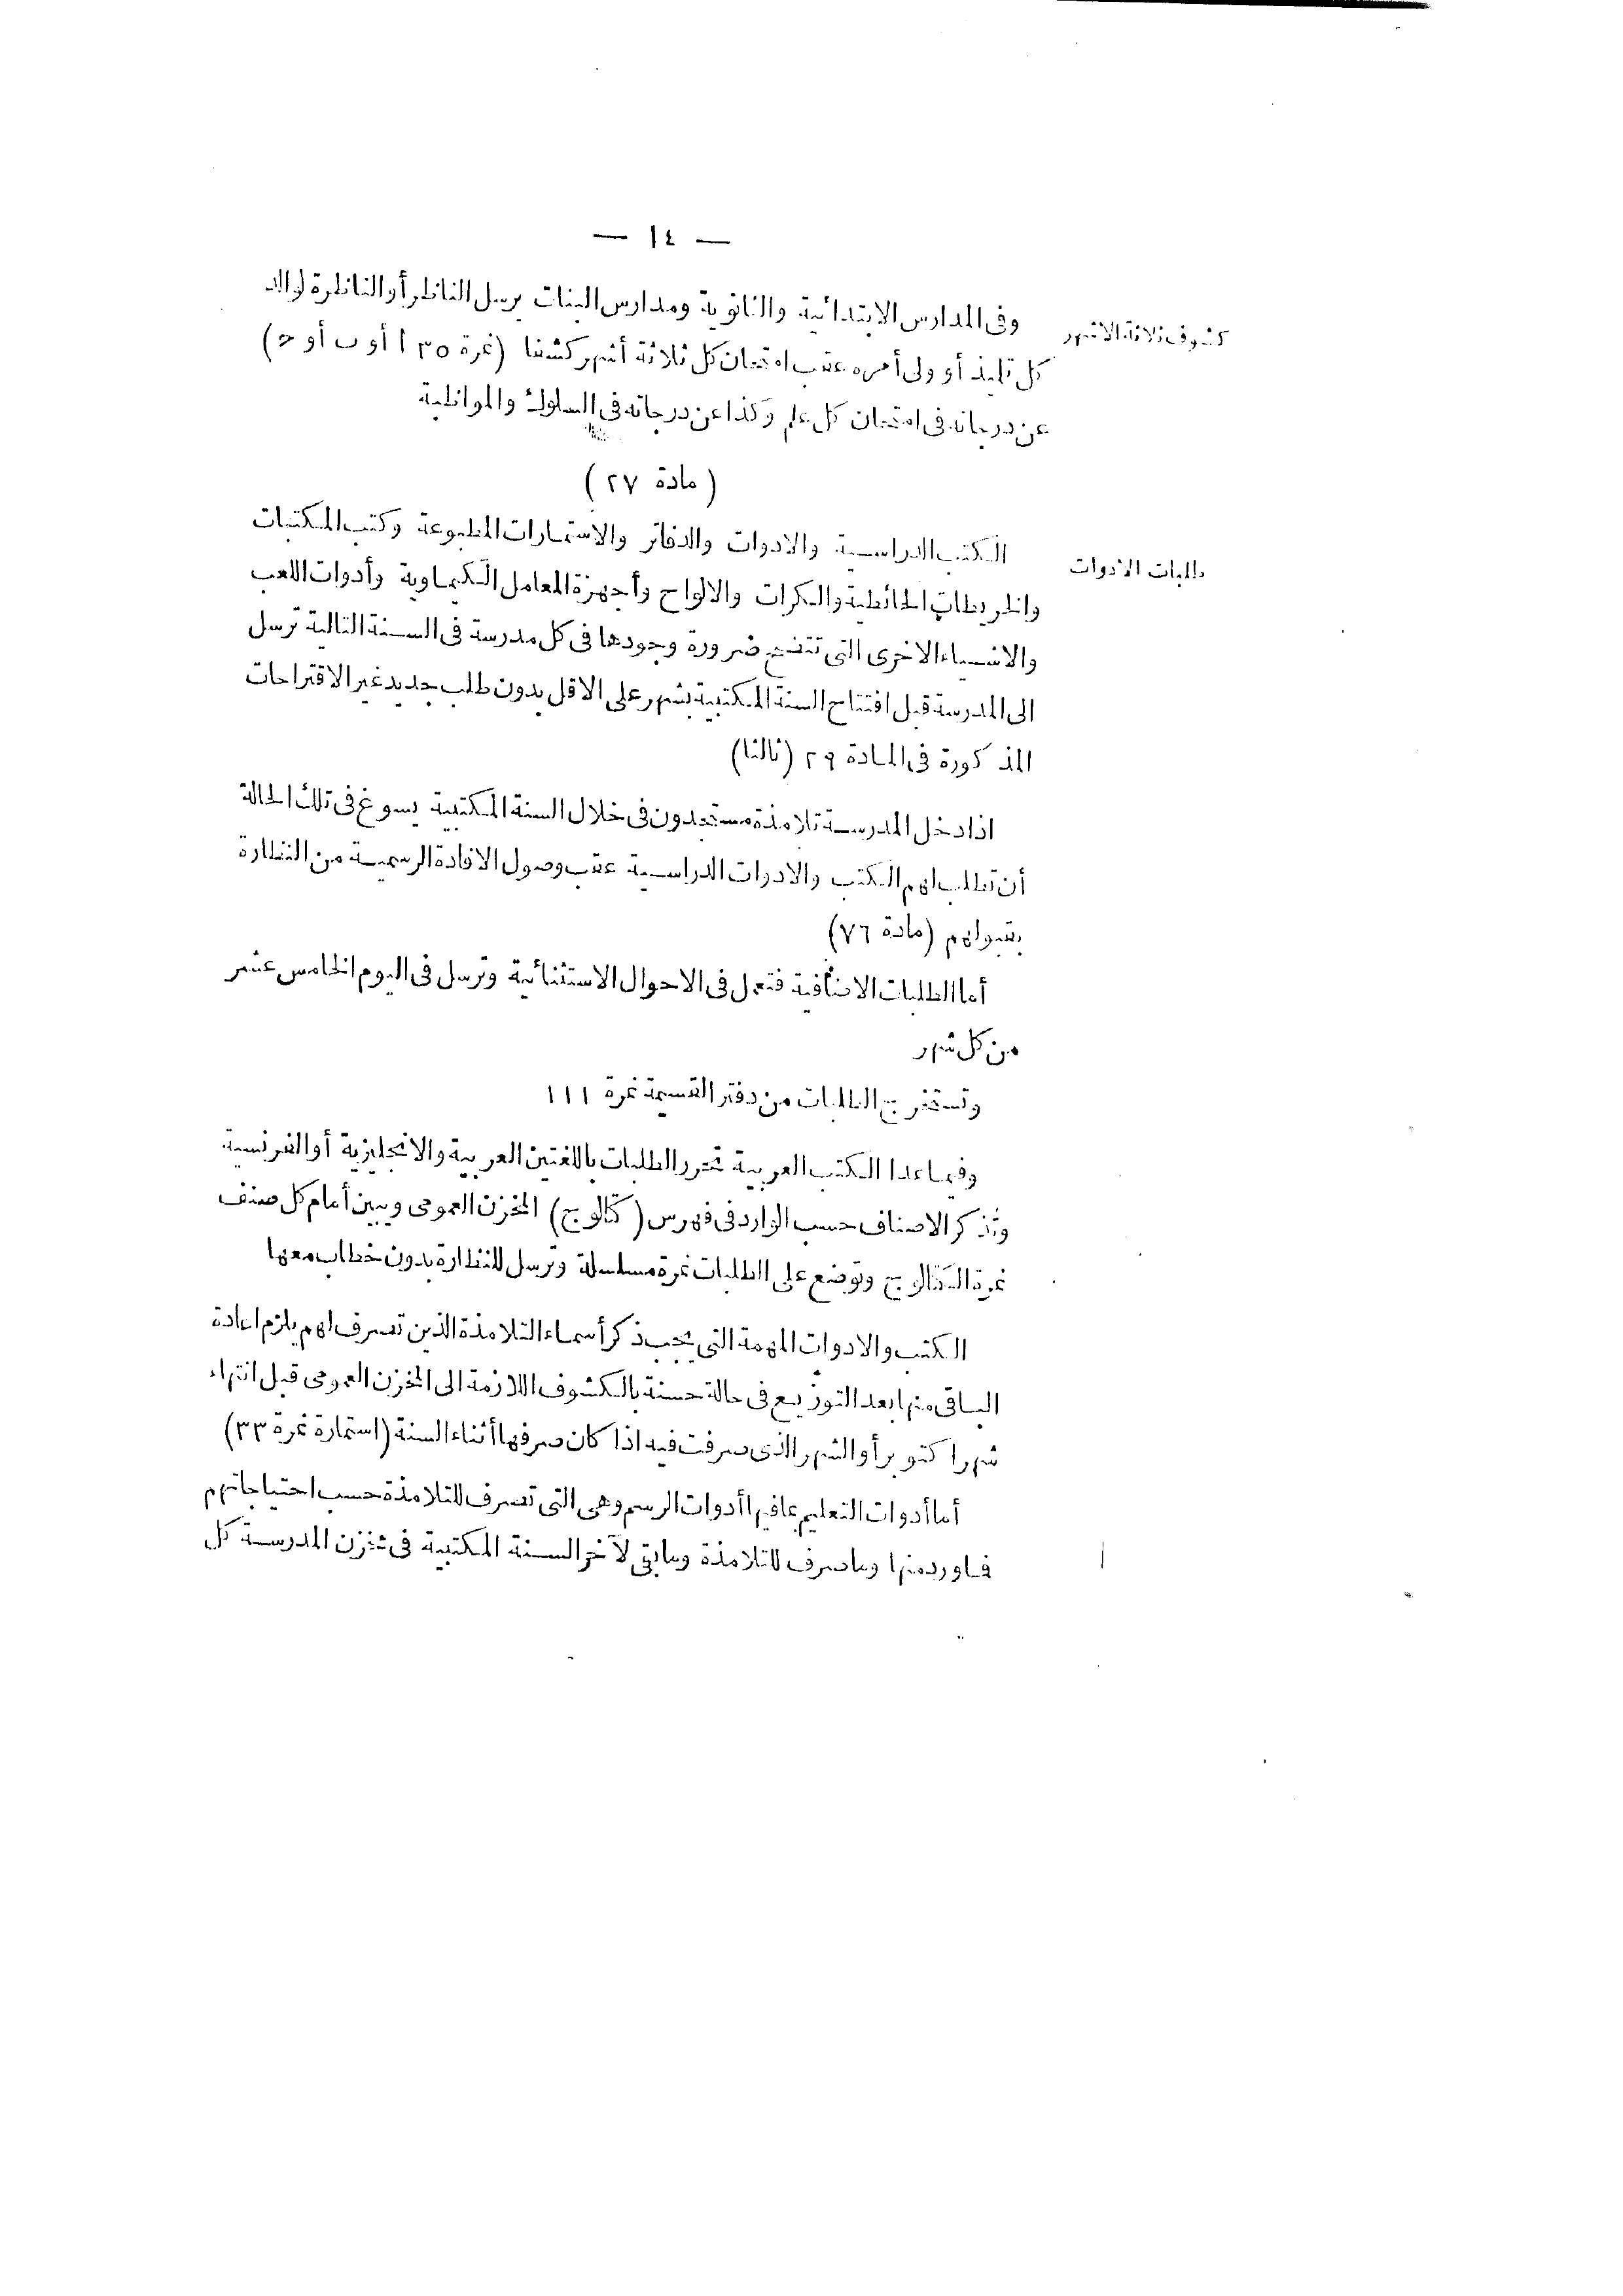 — ١٤ —
كشوف ثلاثة الاشهر
وفى المدارس الابتدائية والثانوية ومدارس البنات يرسل الناظر أو الناظرة لوالد
كل تلميذ أو ولى أمره عقب امتحان كل ثلاثة أشهر كشفا (نمرة ٣٥ ا أو ب أو ح)
عن درجاته فى امتحان كل علم وكذا عن درجاته فى السلوك والمواظبة
(مادة ٢٧)
طلبات الادوات
الكتب الدراسية والادوات والدفاتر والاستمارات المطبوعة وكتب المكتبات
والخريطات الحائطية والكرات والالواح وأجهزة المعامل الكيماوية وأدوات اللعب
والاشياء الاخرى التى تتضح ضرورة وجودها فى كل مدرسة فى السنة التالية ترسل
الى المدرسة قبل افتتاح السنة المكتبية بشهر على الاقل بدون طلب جديد غير الاقتراحات
المذكورة فى المادة ٢٩ (ثالثا)
اذا دخل المدرسة تلامذة مستجدون فى خلال السنة المكتبية يسوغ فى تلك الحالة
أن تطلب لهم الكتب والادوات الدراسية عقب وصول الافادة الرسمية من النظارة
بقبولهم (مادة ٧٦)
أما الطلبات الاضافية فتعمل فى الاحوال الاستثنائية وترسل فى اليوم الخامس عشر
من كل شهر
وتستخرج الطلبات من دفتر القسيمة نمرة ١١١
وفيما عدا الكتب العربية تحرر الطلبات باللغتين العربية والانجليزية أو الفرنسية
وتذكر الاصناف حسب الوارد فى فهرس (كتالوج) المخزن العمومى ويبين أمام كل صنف
نمرة الكتالوج وتوضع على الطلبات نمرة مسلسلة وترسل للنظارة بدون خطاب معها
الكتب والادوات المهمة التى يجب ذكر أسماء التلامذة الذين تصرف لهم يلزم اعادة
الباقى منها بعد التوزيع فى حالة حسنة بالكشوف اللازمة الى المخزن العمومى قبل انتهاء
شهر اكتوبر أو الشهر الذى صرفت فيه اذا كان صرفها أثناء السنة (استمارة نمرة ٣٣)
أما أدوات التعليم بما فيها أدوات الرسم وهى التى تصرف للتلامذة حسب احتياجاتهم
فما ورد منها وما صرف للتلامذة وما بقى لآخر السنة المكتبية فى مخزن المدرسة كل